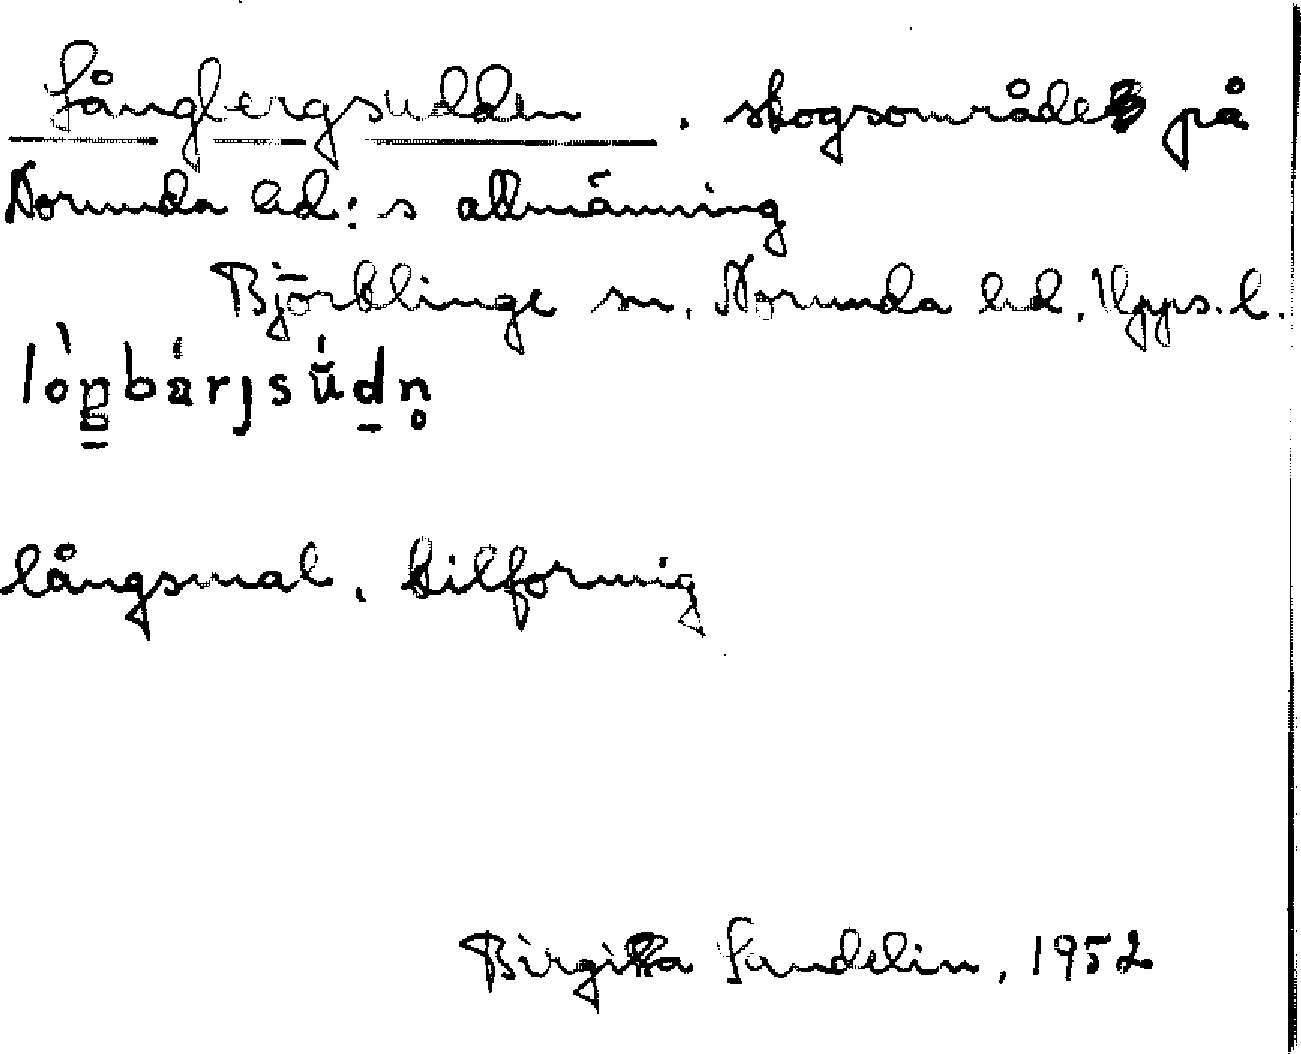 Långbergsudden, skogsområde på
Norunda hd:s allmänning
Björklinge sn. Norunda hd. Upps. l.
långsmal, kilformig
Birgitta Sandelin, 1952